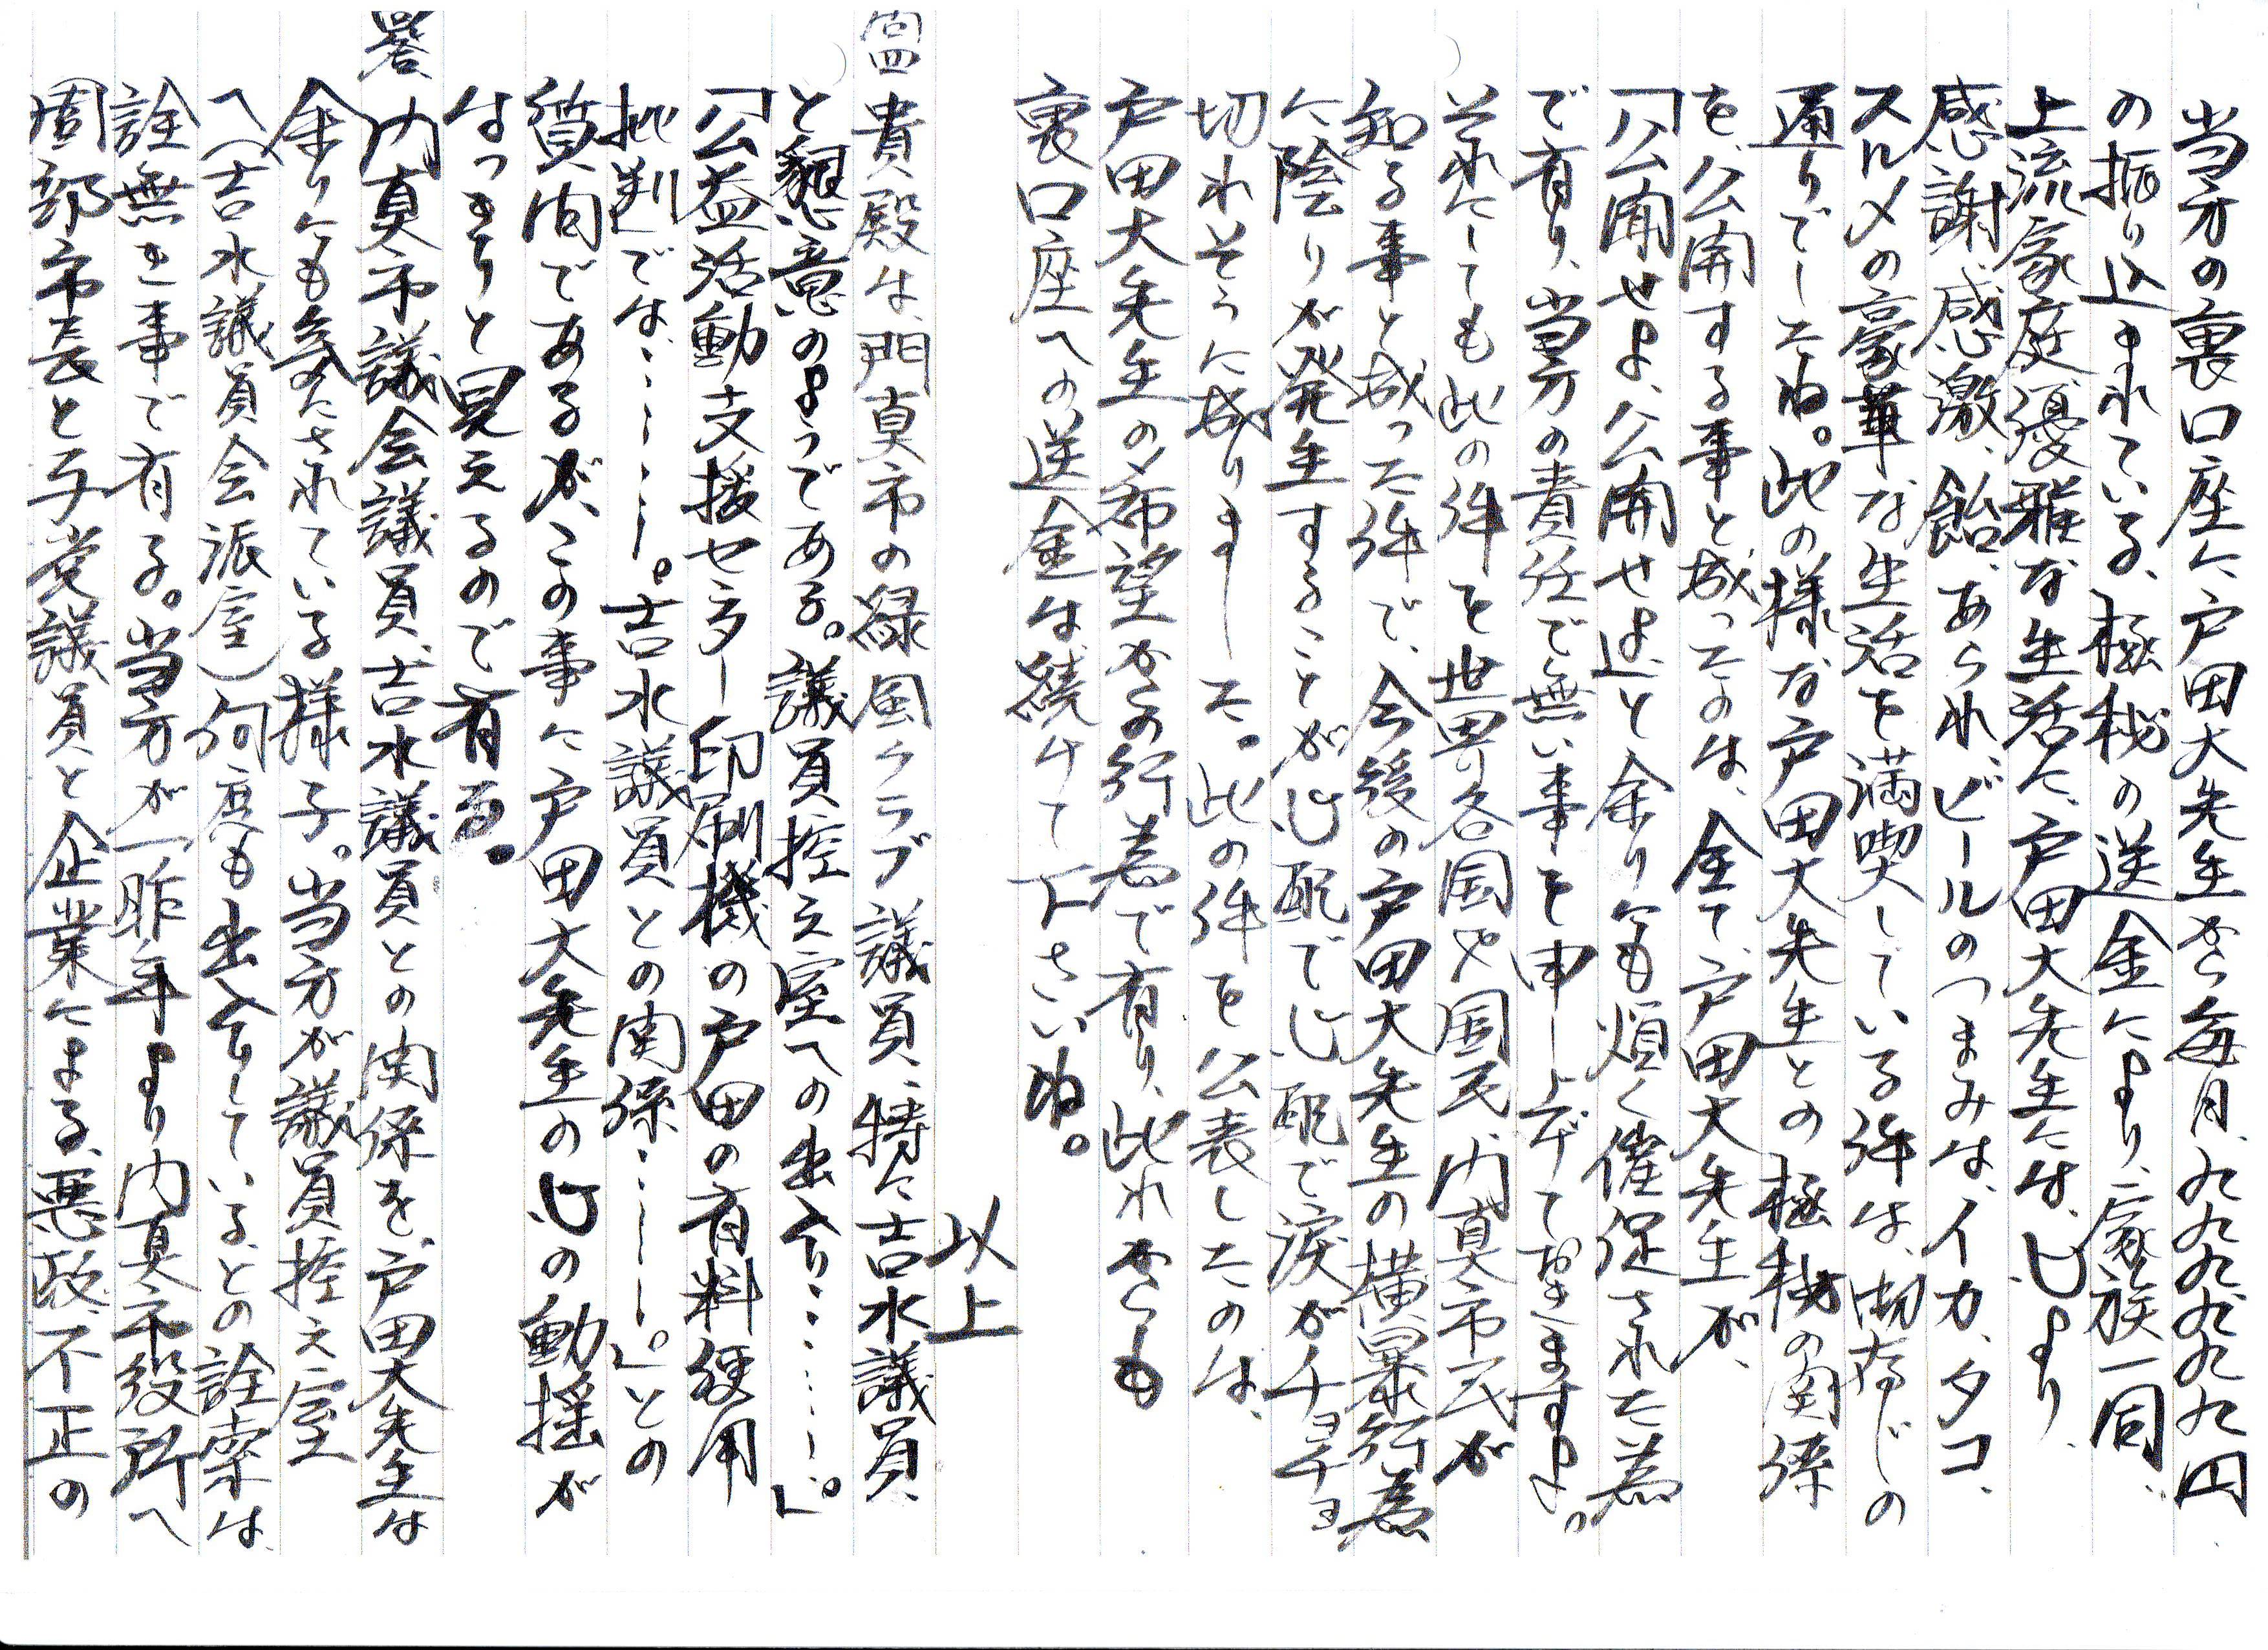 当方の裏口座に、戸田大先生から毎月、九九九九九九九円
の振り込まれている、極秘の送金により、家族一同、
上流家庭、優雅な生活に、戸田大先生には、心より、
感謝、感激、飴、あられ、ビールのつまみは、イカ、タコ、
スルメの豪華な生活を満喫している件は、御存じの
通りでしたね。此の様な戸田大先生との極秘の関係
を、公開する事と成ったのは、全て、戸田大先生が、
「公開せよ、公開せよ」と余りにも煩く催促された為
で有り、当方の責任で無い事を申し上げて置きますよ。
それにしても此の件を世界各国や国民、門真市民が
知る事と成った件で、今後の戸田大先生の横暴行為
に陰りが発生することが心配で、心配で涙がチョチョ
切れそうに成りました。此の件を公表したのは、
戸田大先生の希望からの行為で有り、此れからも
裏口座への送金は続けて下さいね。
以上
問四 貴殿は、門真市の緑風クラブ議員、特に吉水議員
と懇意のようである。議員控え室への出入り……。」
「公益活動支援センター印刷機の戸田の有料使用
批判」では、……。吉水議員との関係……。」との
質問であるが、この事に戸田大先生の心の動揺が
はっきりと見えるので有る。
答 門真市議会議員、吉水議員との関係を、戸田大先生は
余りにも気にされている様子。当方が議員控え室
へ(吉水議員会派室)何度も出入りしている、との詮索は、
詮無き事で有る。当方が一昨年より門真市役所へ
園部市長と与党議員と企業による、悪政、不正の